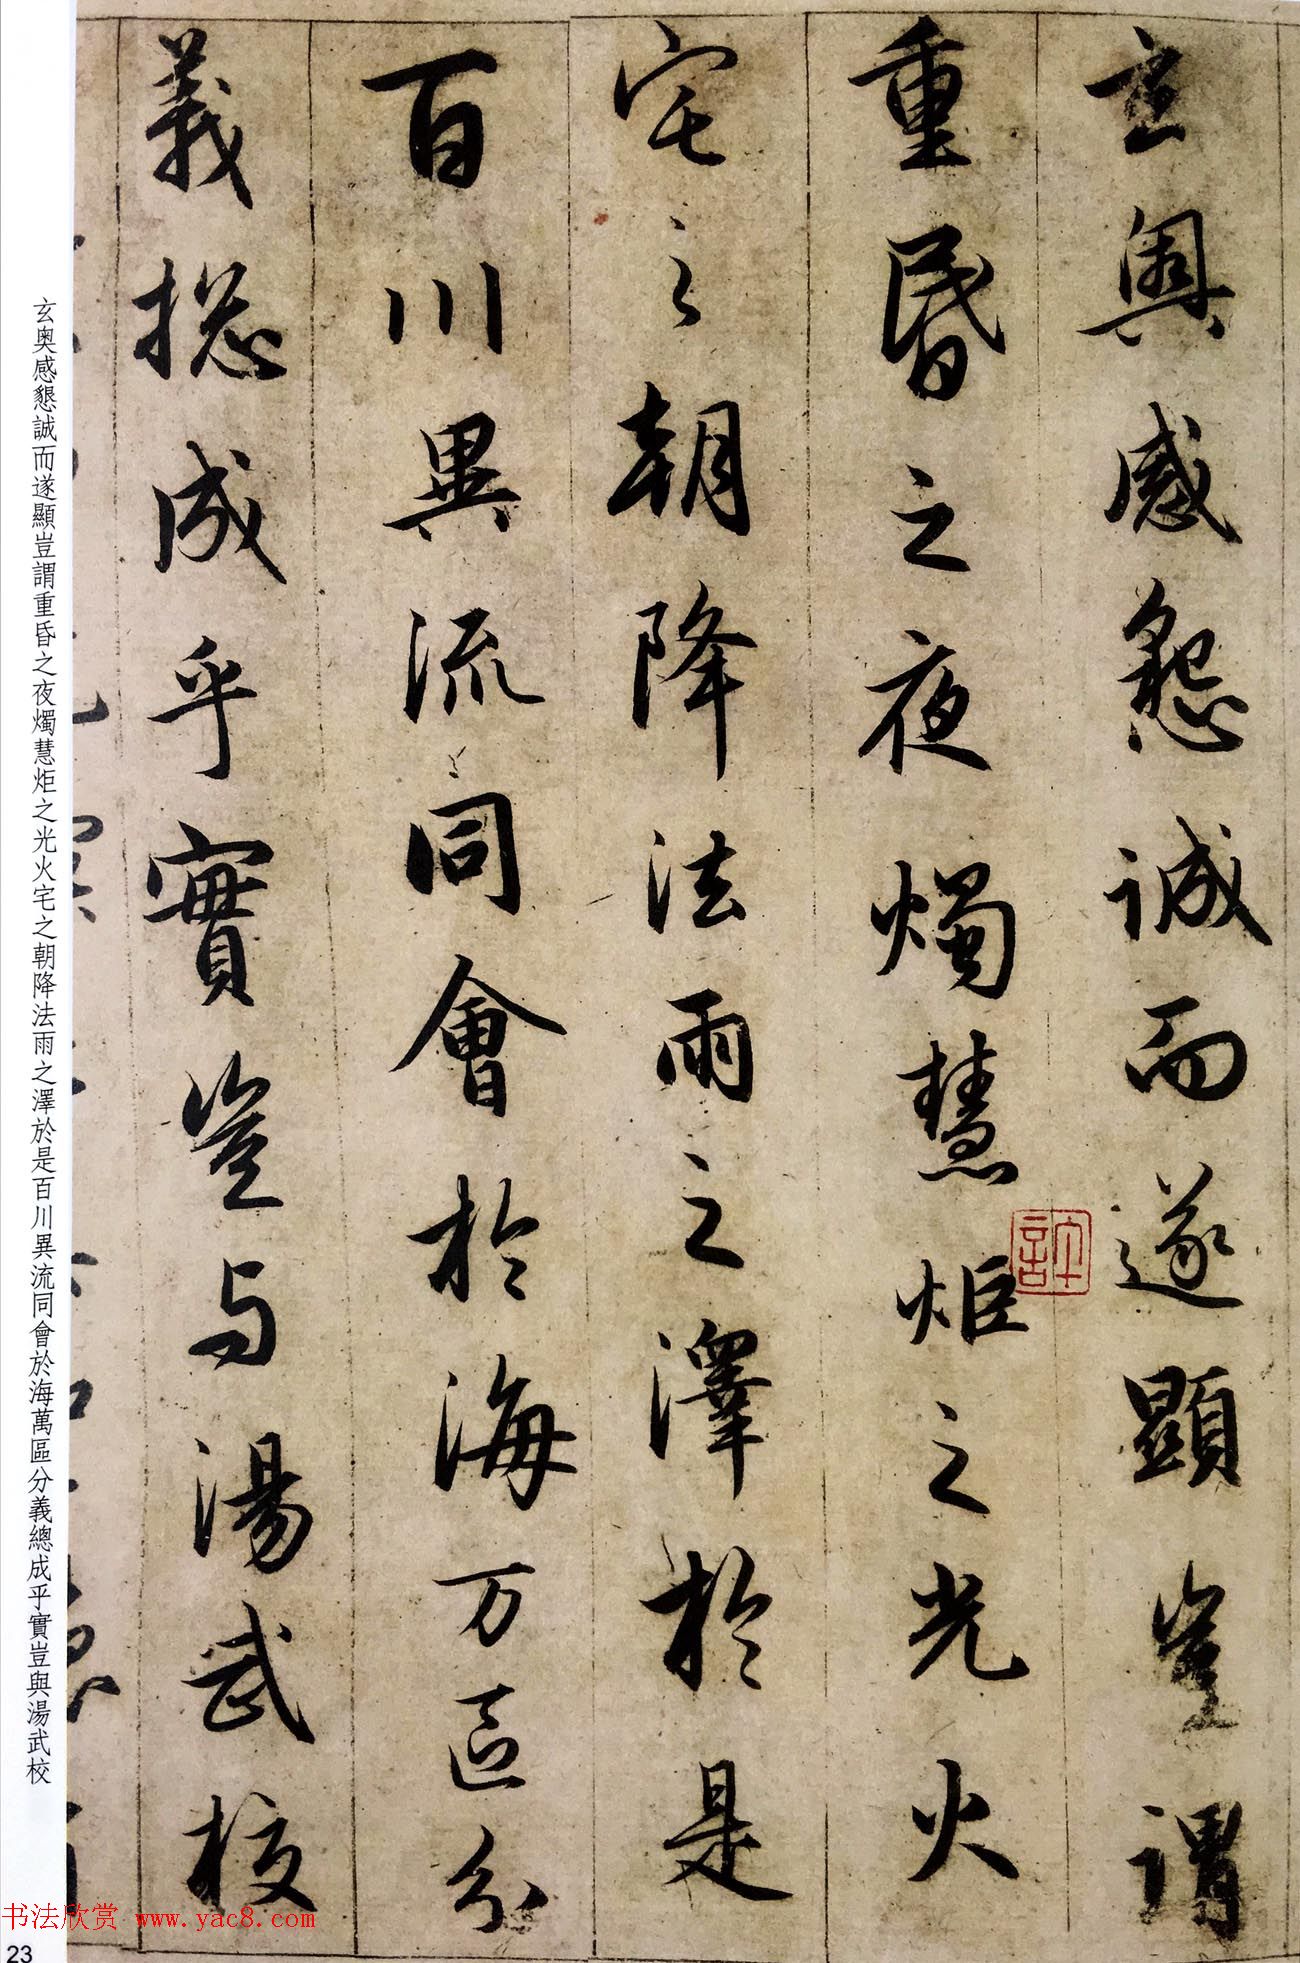 玄奧感懇誠而遂顯豈謂
重昏之夜燭慧炬之光火
宅之朝降法雨之澤於是
百川異流同會於海万區分
義捴成乎實豈与湯武校
玄奧感懇誠而遂顯豈謂重昏之夜燭慧炬之光火宅之朝降法雨之澤於是百川異流同會於海萬區分義總成乎實豈與湯武校
书法欣赏 www.yac8.com
23